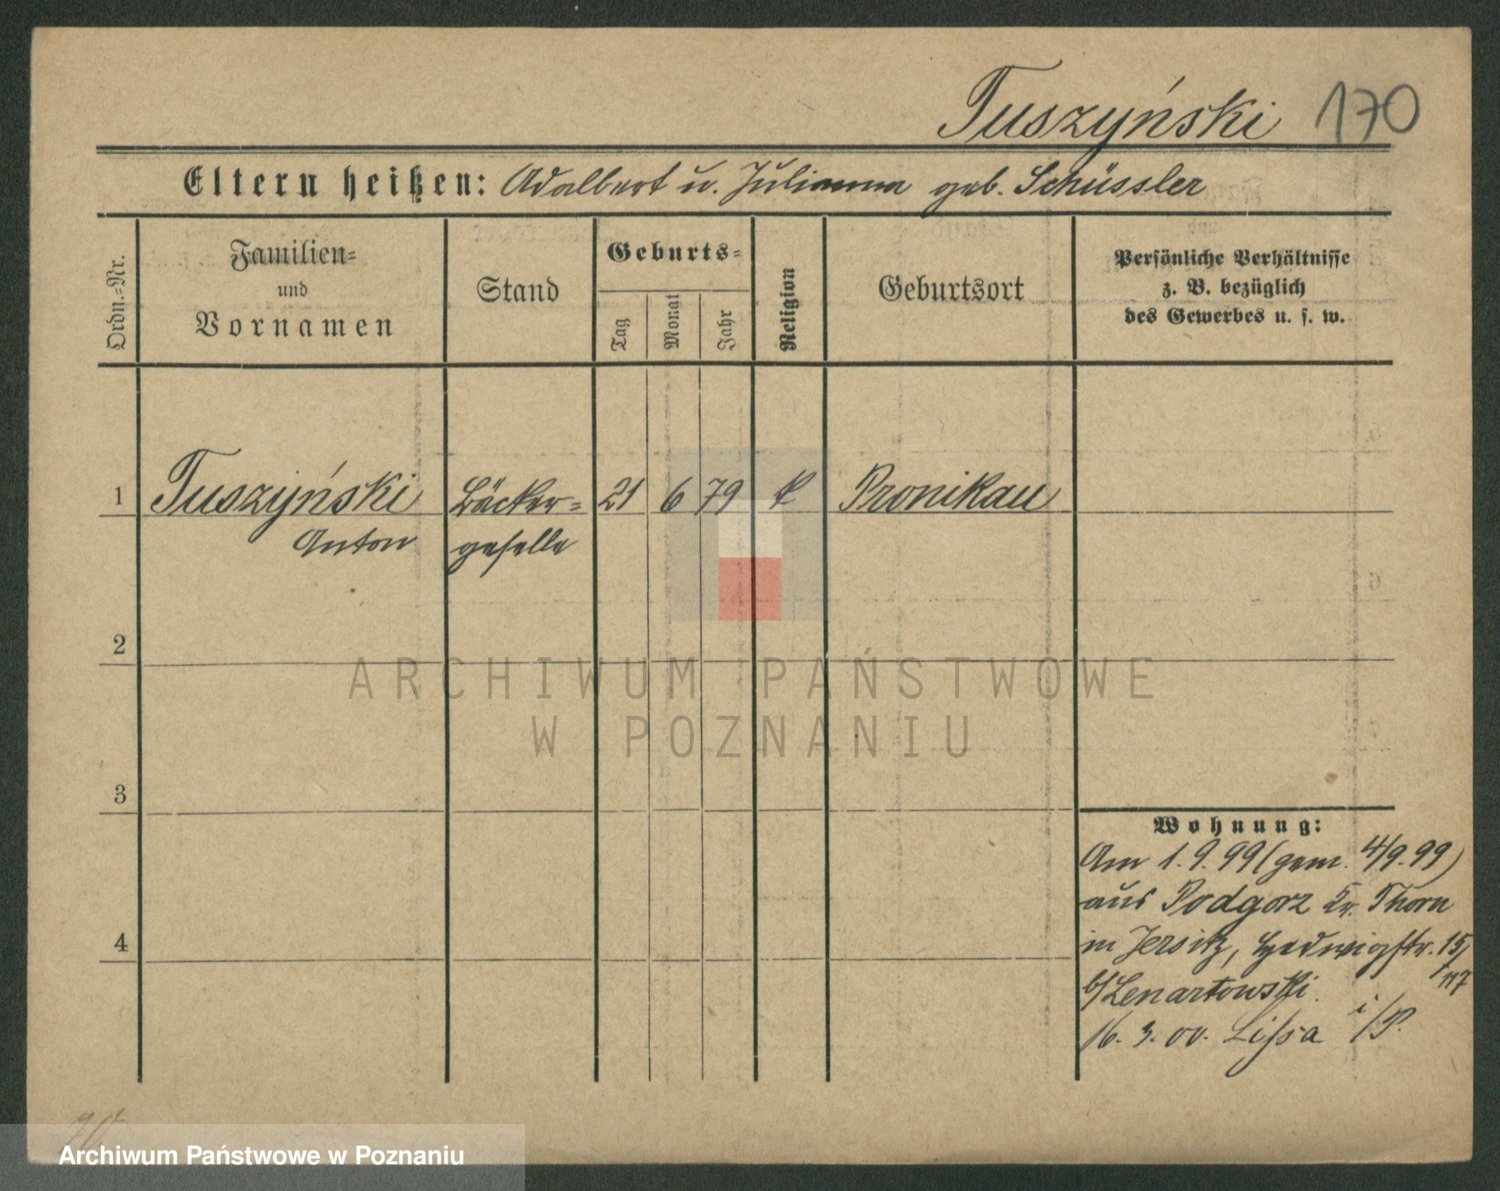 Tuszyński 170
Eltern heißen: Adalbert u. Julianna geb. Schüssler
Ordn.-Nr.
Familien-
und
Vornamen
Stand
Geburts-
Tag
Monat
Jahr
Religion
Geburtsort
Persönliche Verhältnisse
z. B. bezüglich
des Gewerbes u. s. w.
1 Tuszyński Bäcker- 21 6 79 k Pronikau
Anton geselle
2
3
4
Wohnung:
Am 1.9.99 (gem. 4/9.99)
aus Podgorz Kr. Thorn
in Jersitz, Hedwigstr. 15/
117
b/ Lenartowski
16. 3. 00. Lissa i/P.
ARCHIWUM PAŃSTWOWE
W POZNANIU
Archiwum Państwowe w Poznaniu